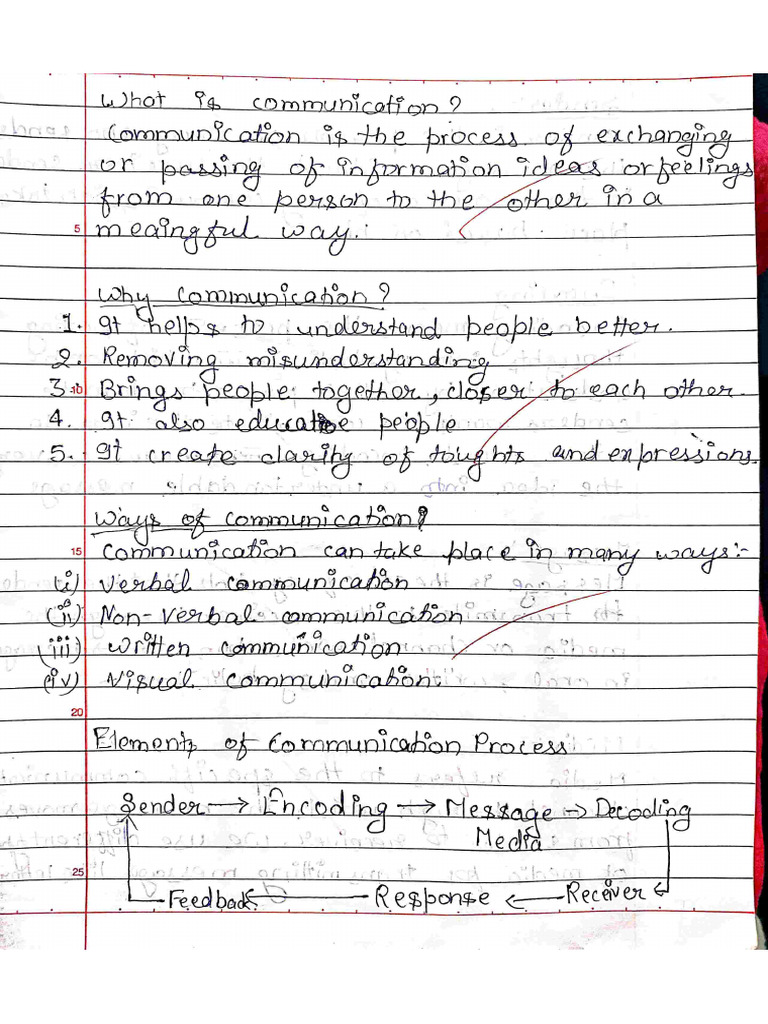 What is communication?
Communication is the process of exchanging
or passing of information ideas or feelings
from one person to the other in a
5 meaingful way.
Why communication?
1. It helps to understand people better.
2. Removing misunderstanding
3. 10 Brings people together, closer to each other.
4. It also educate people
5. It create clarity of toughts and expressions.
Ways of communication?
15 Communication can take place in many ways:-
(i) Verbal communication
(ii) Non-verbal communication
(iii) Written communication
(iv) Visual communication.
20
Elements of Communication Process
Sender → Encoding → Message → Decoding
Media
25 Feedback ← Response ← Receiver